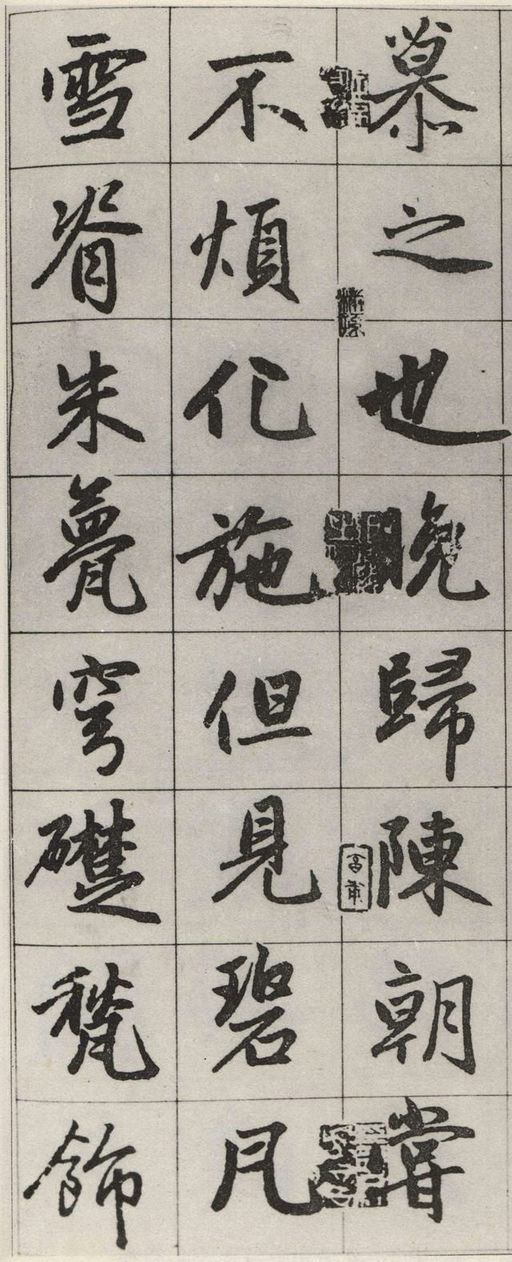 慕之也晚歸陳朝嘗
不煩化施但見碧瓦
雪脊朱甍穹礎甃飾